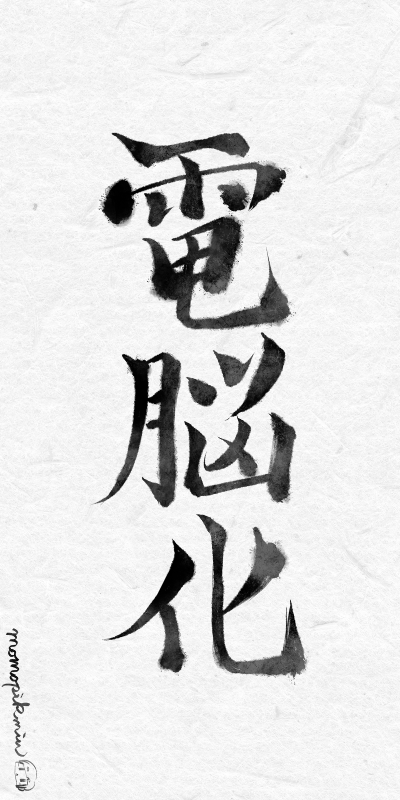 電脳化
momopikmin